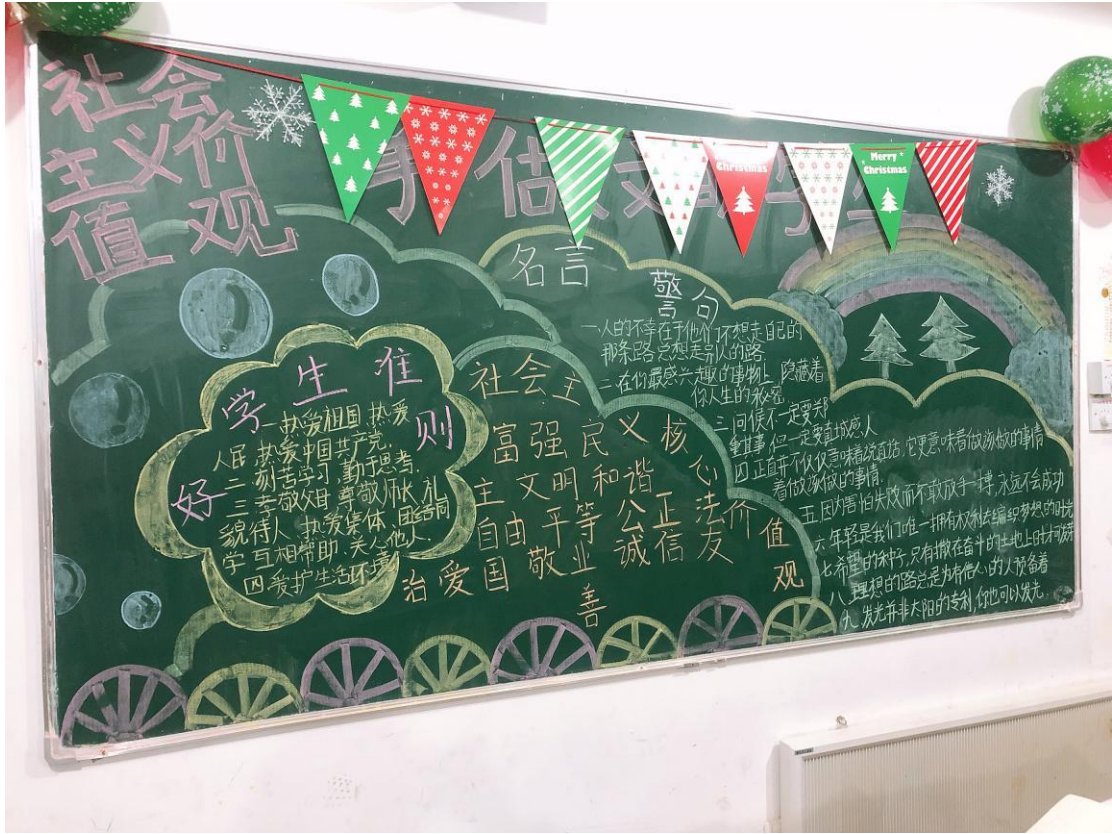 社会
主义价
值观
做
Merry
Christmas
Merry
Christmas
名言
警句
一.人的不幸在于他们不想走自己的
那条路,总想走别人的路
二.在你最感兴趣的事物上,隐藏着
你人生的秘密
三.问候不一定要郑
重其事,但一定要真诚感人
四.正直并不仅仅意味着说真话,它更意味着做该做的事情
着做该做的事情.
五.因为害怕失败而不敢放手一搏,永远不会成功
六.年轻是我们唯一拥有权利去编织梦想的时光
七.希望的种子,只有撒在奋斗的土地上时才可发芽
八.理想的路总是为有信心的人预备着
九.发光并非太阳的专利,你也可以发光.
好学生准则
一.热爱祖国,热爱
人民,热爱中国共产党.
二.刻苦学习,勤于思考.
三.孝敬父母,尊敬师长,礼
貌待人,热爱集体,团结同
学,互相帮助,关心他人.
四.爱护生活环境
社会主义核心价值观
富强民
主文明和谐
自由平等公正法
治爱国敬业诚信友
善